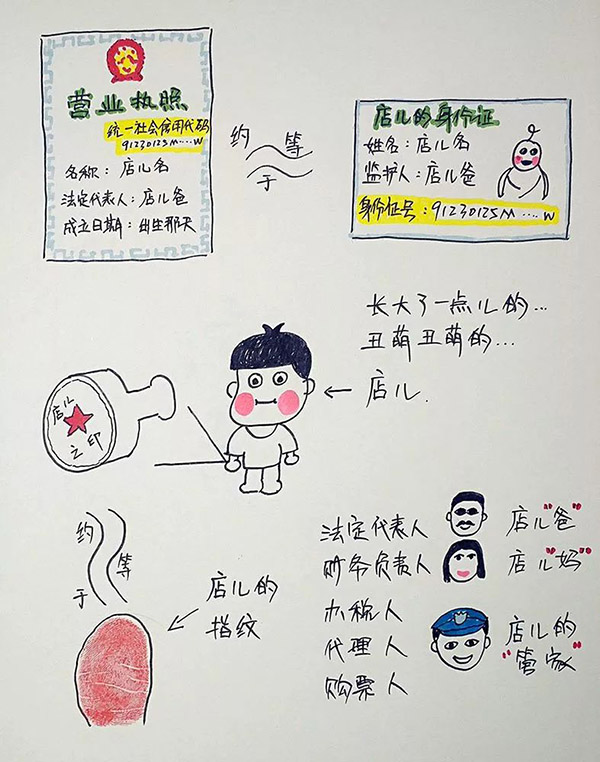 营业执照
统一社会信用代码
91230125M·····W
名称：店儿名
法定代表人：店儿爸
成立日期：出生那天
约等于
店儿的身份证
姓名：店儿名
监护人：店儿爸
身份证号：91230125M····W
长大了一点儿的…
丑萌丑萌的…
店儿.
店儿
之印
约等于
店儿的
指纹
法定代表人 店儿"爸"
财务负责人 店儿"妈"
办税人
代理人
购票人
店儿的
"管家"